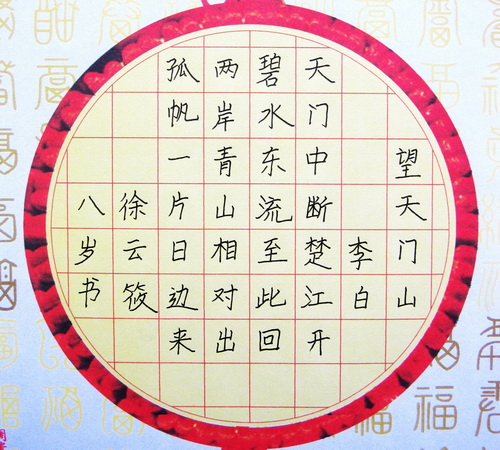 望天门山
李白
天门中断楚江开
碧水东流至此回
两岸青山相对出
孤帆一片日边来
徐云筱
八岁书